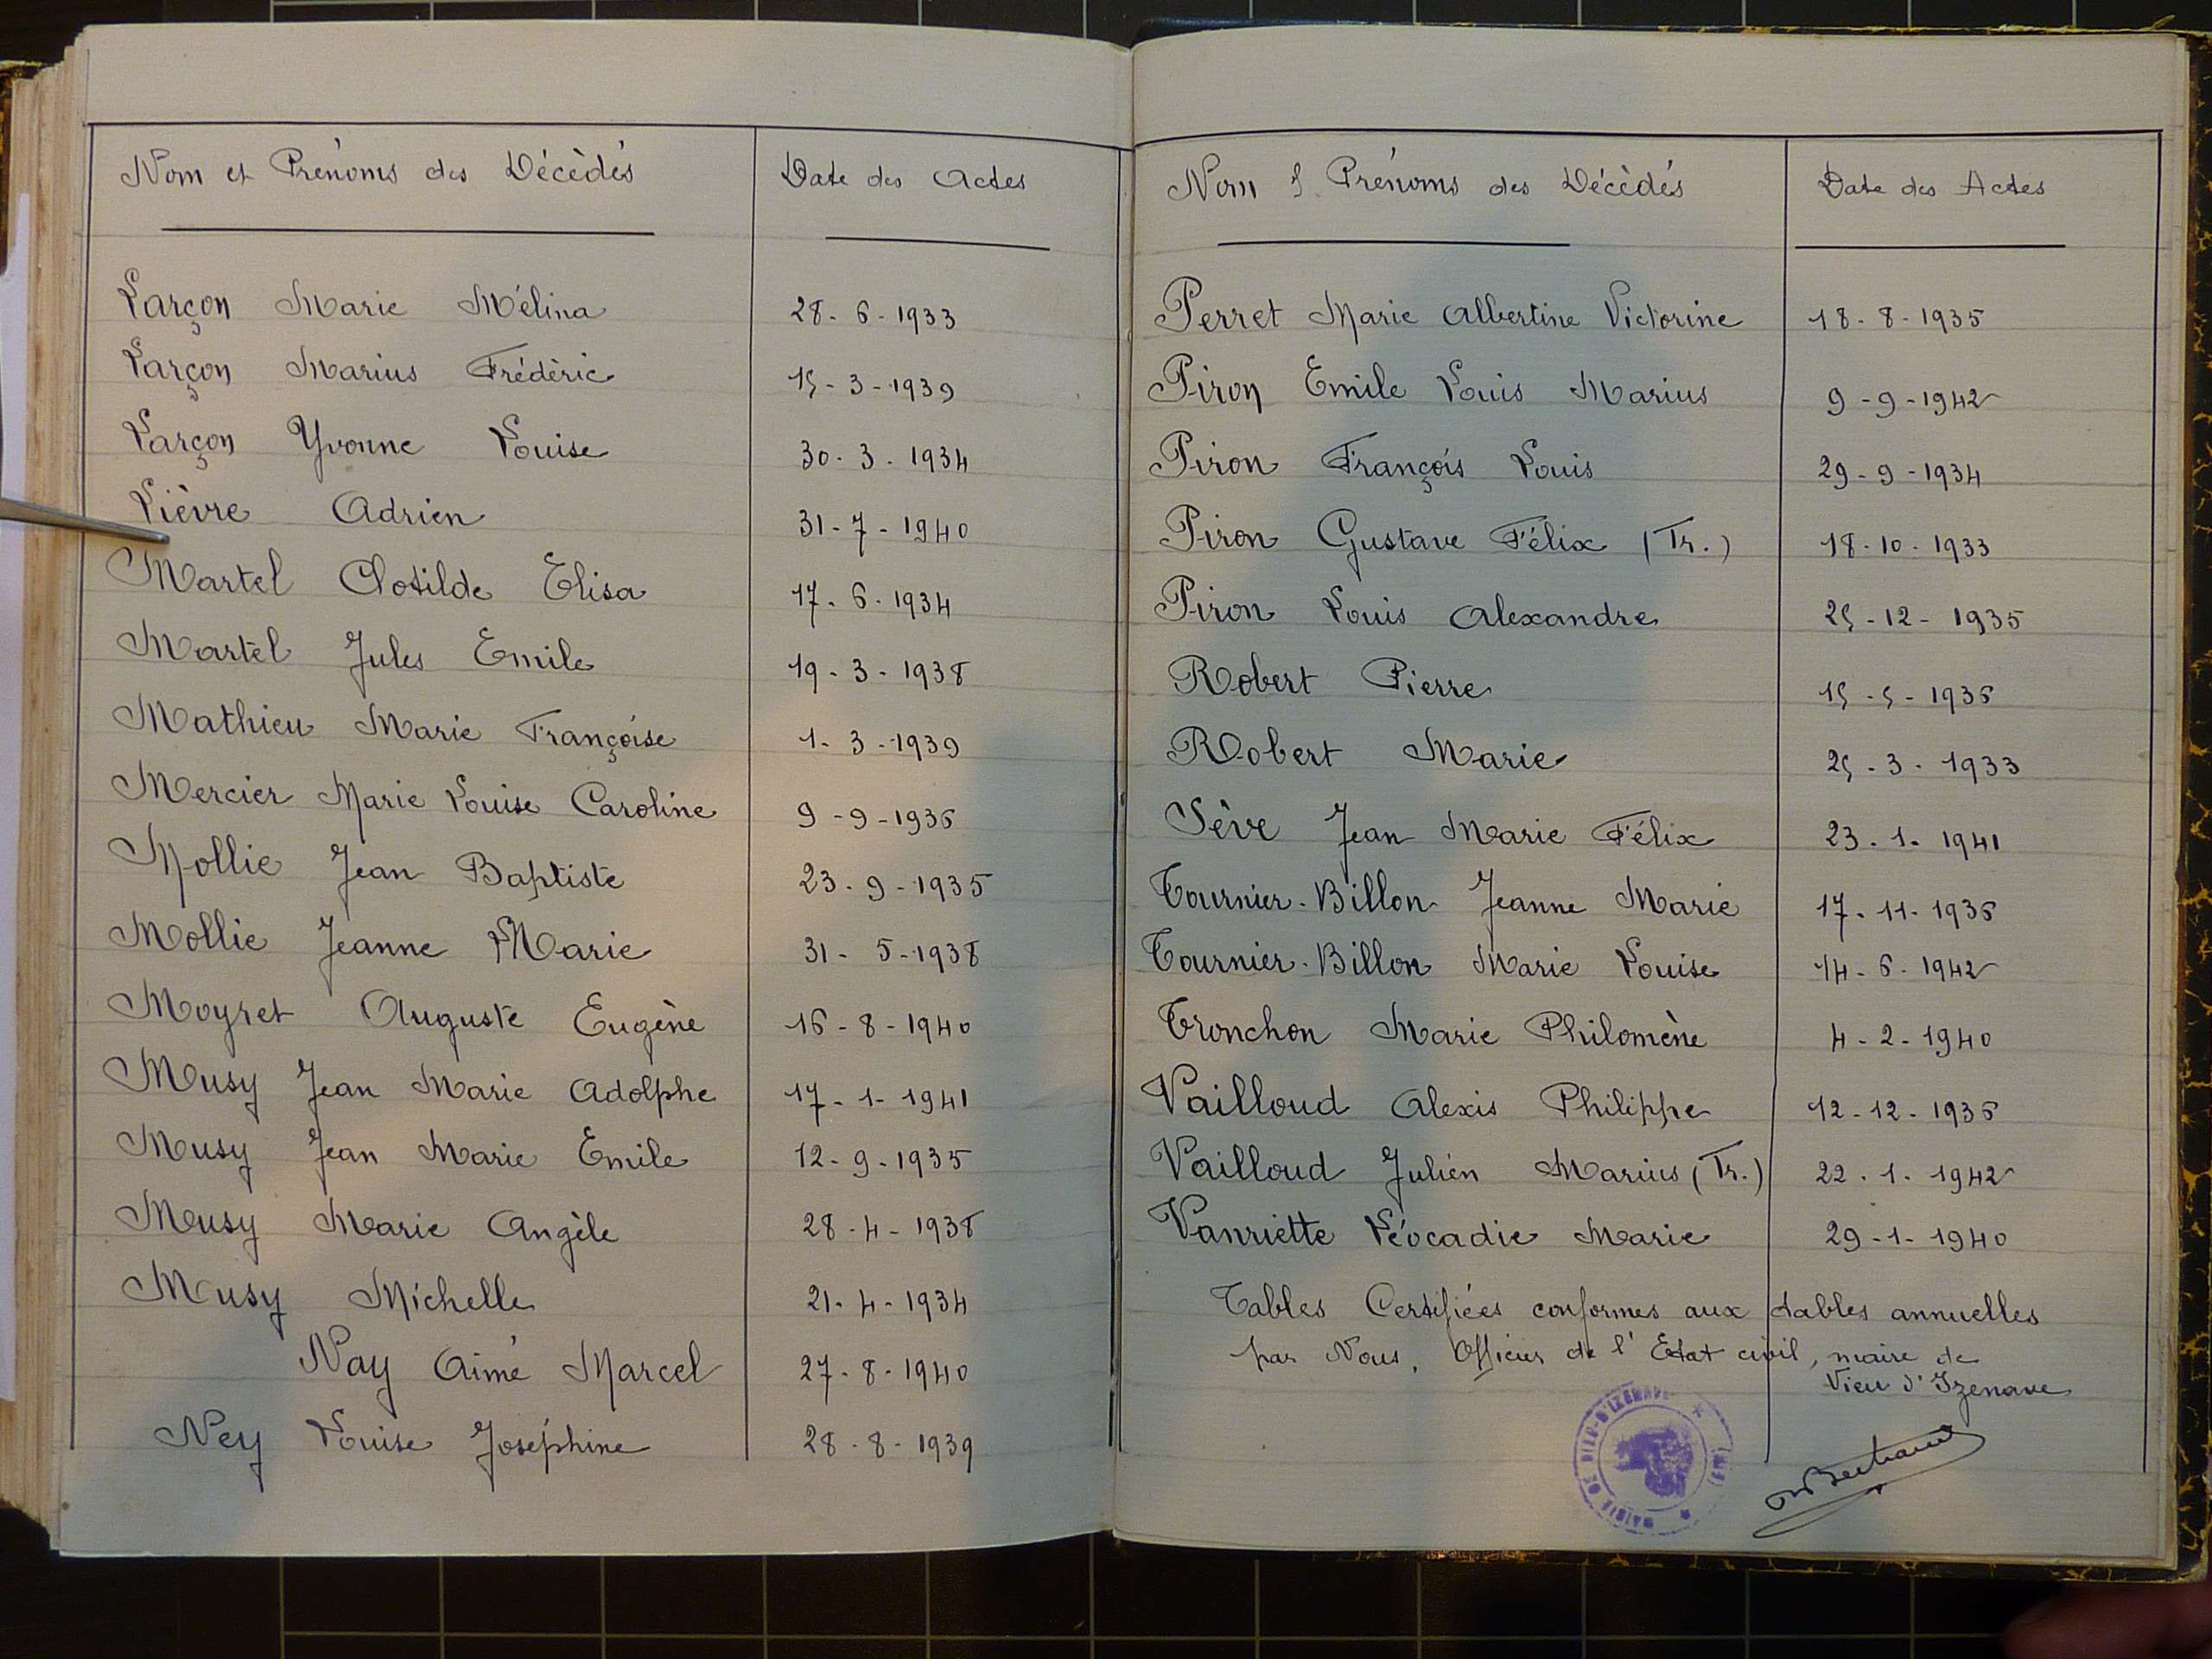 Nom et Prénoms des Décèdés Date des Actes
Larçon Marie Mélina 28-6-1933
Larçon Marius Frédèric 15-3-1939
Larçon Yvonne Louise 30.3.1934
Lièvre Adrien 31-7-1940
Martel Clotilde Elisa 17.6.1934
Martel Jules Emile 19-3-1938
Mathieu Marie Françoise 1-3-1939
Mercier Marie Louise Caroline 9-9-1936
Mollie Jean Baptiste 23-9-1935
Mollie Jeanne Marie 31-5-1938
Moyret Auguste Eugène 16-8-1940
Musy Jean Marie Adolphe 17-1-1941
Musy Jean Marie Emile 12-9-1935
Musy Marie Angèle 28-4-1938
Musy Michelle 21-4-1934
Nay Aimé Marcel 27-8-1940
Ney Louise Joséphine 28-8-1939
Nom & Prénoms des Décèdés Date des Actes
Perret Marie Albertine Victorine 18-8-1935
Piron Emile Louis Marius 9-9-1942
Piron François Louis 29-9-1934
Piron Gustave Félix (Tr.) 18-10-1933
Piron Louis Alexandre 25-12-1935
Robert Pierre 15-5-1936
Robert Marie 25-3-1933
Sève Jean Marie Félix 23.1.1941
Tournier-Billon Jeanne Marie 17-11-1936
Tournier-Billon Marie Louise 14-6-1942
Tronchon Marie Philomène 4-2-1940
Vailloud Alexis Philippe 12-12-1936
Vailloud Julien Marius (Tr.) 22.1.1942
Vanriette Léocadie Marie 29-1-1940
Tables Certifiées conformes aux tables annuelles
par Nous, Officier de l'Etat civil, maire de
Vieu d'Izenave
MAIRIE DE VIEU-D'IZENAVE * (AIN) *
Bertrand